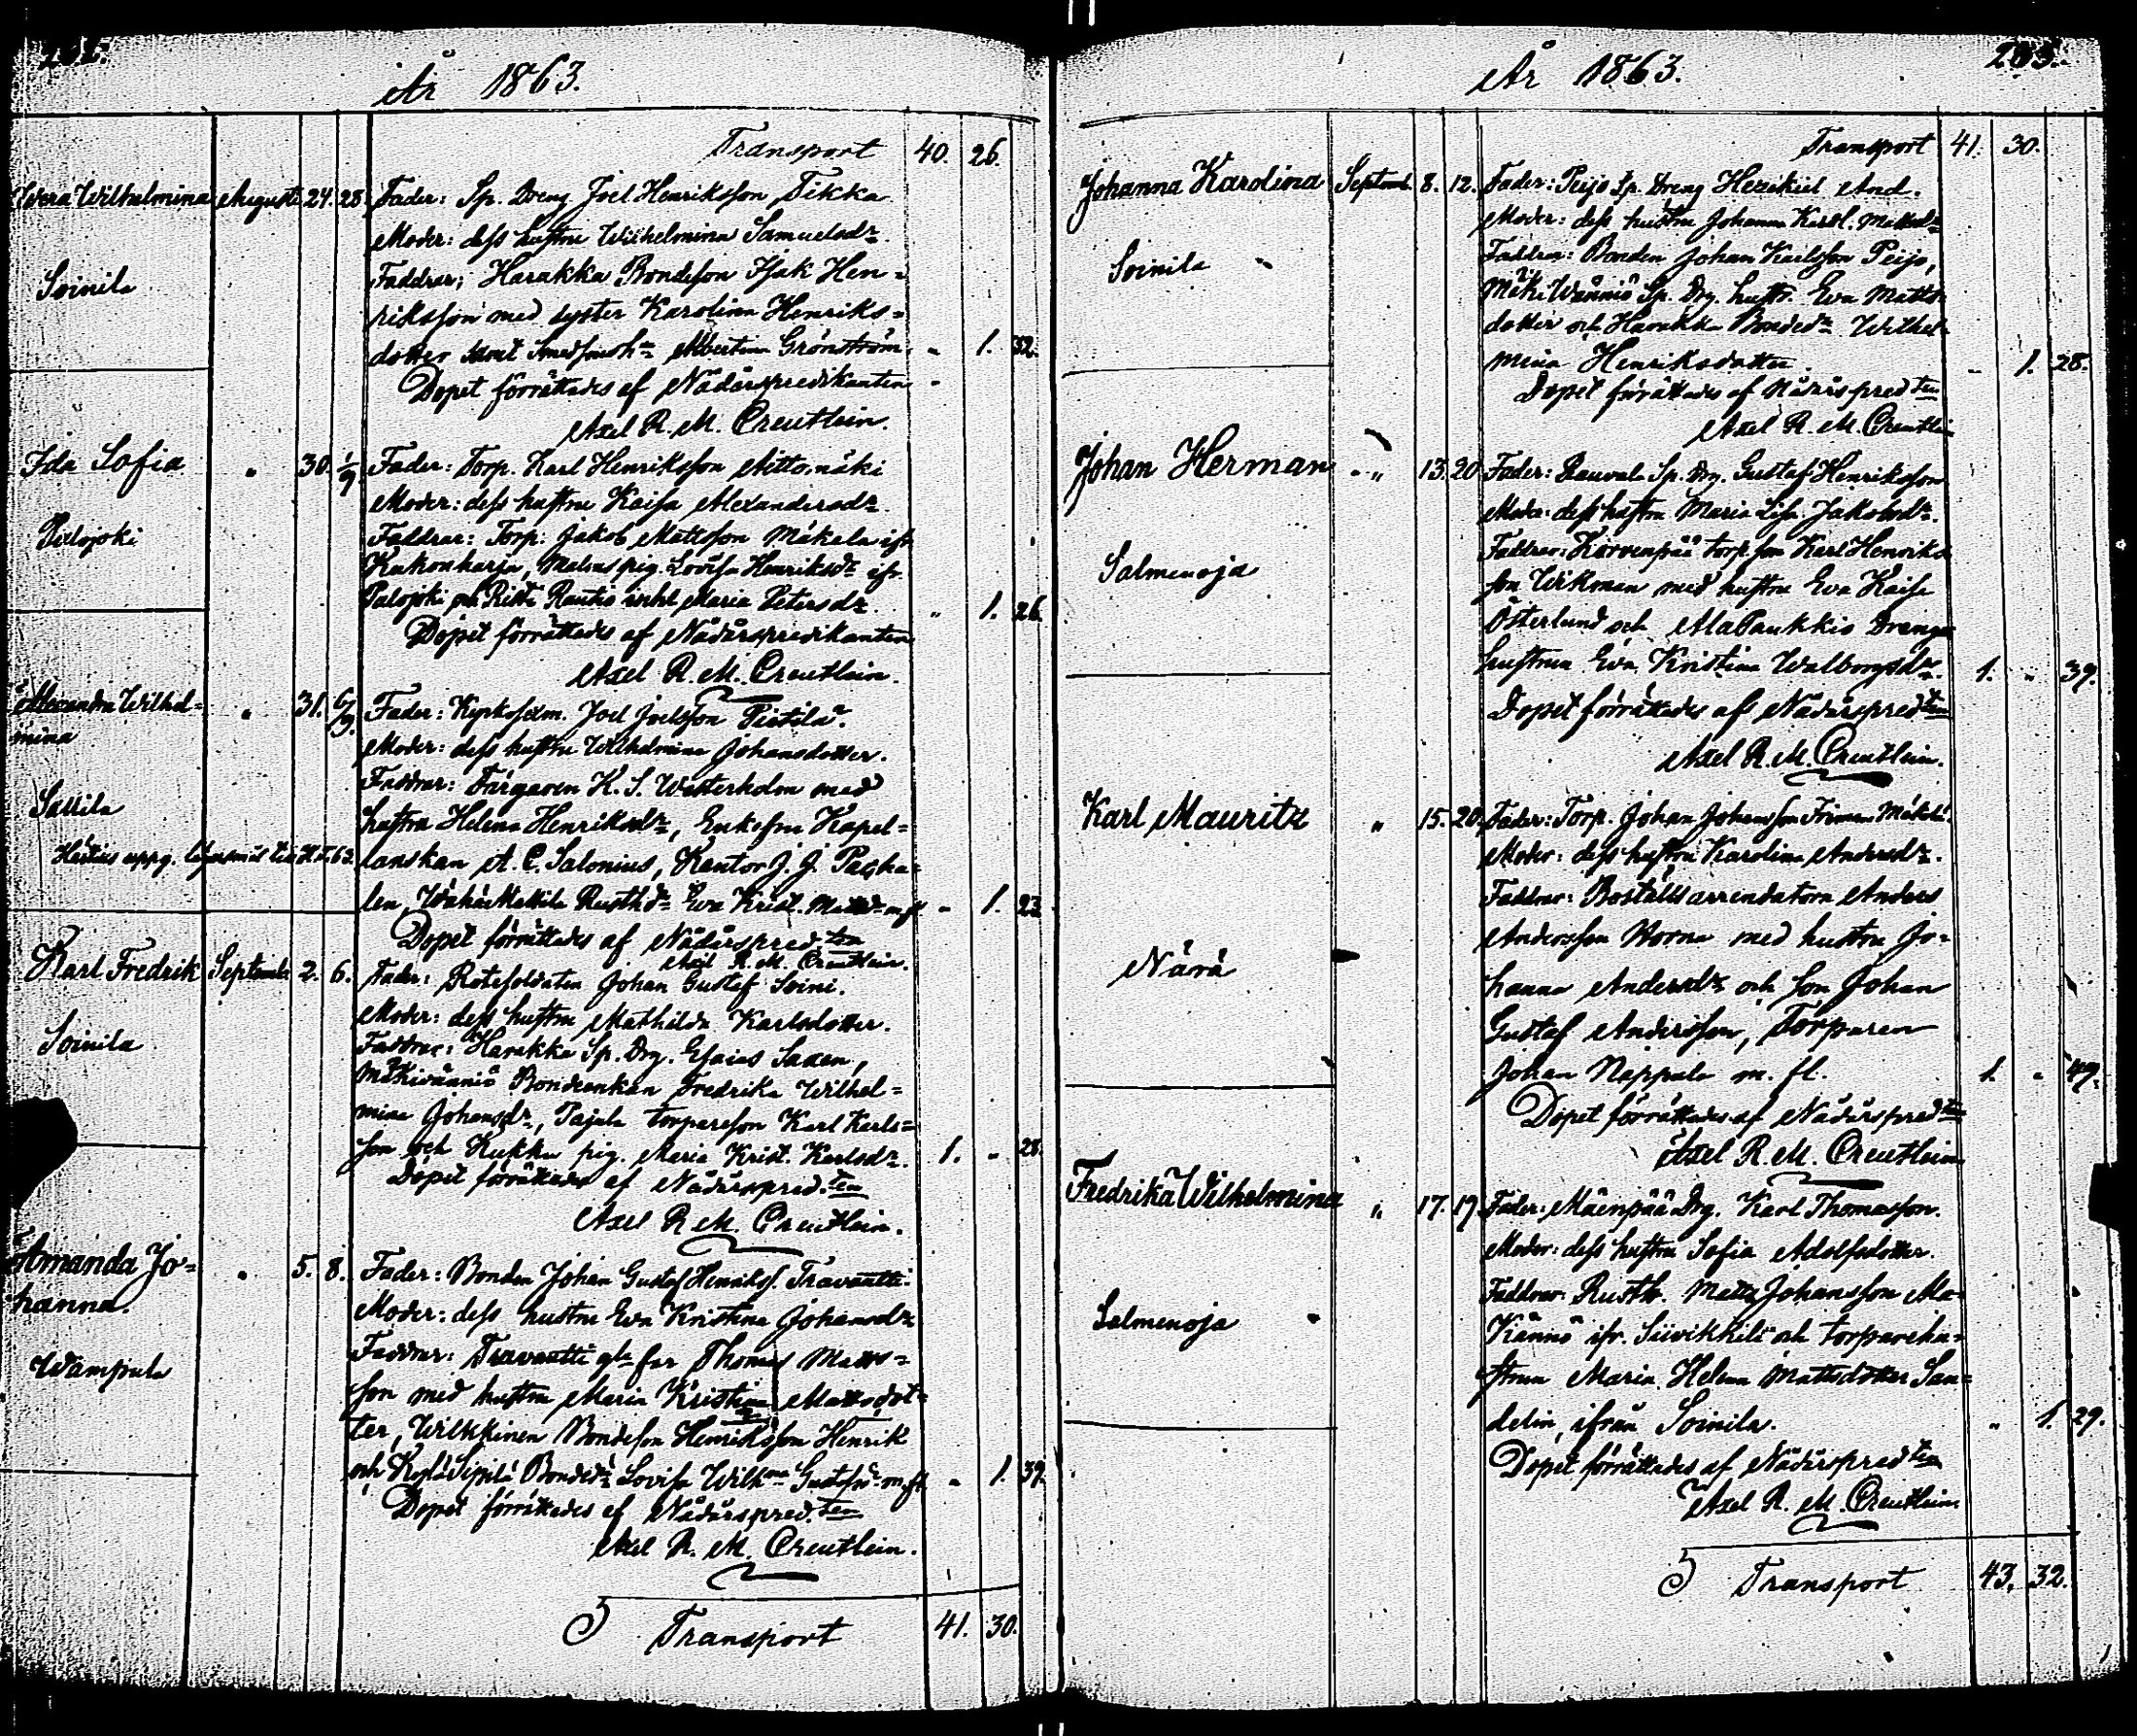 År 1863.
Transport 40. 26.
Wera Wilhelmina Augusti 24. 28. Fader: Sp. Dreng Joel Henriksson Tikka
Moder: dess hustru Wilhelmina Samuelsdr.
Soinila
Faddrar: Harakka Bondeson Isak Hen-
riksson med syster Karolina Henriks-
dotter samt Albertina Grönström. " 1. 32.
Dopet förrättades af Nådårspredikanten
Axel R. M. Creutlein.
Ida Sofia " 30. 1/9. Fader: Torp. Karl Henriksson
Moder: dess hustru Kaisa Alexandersdr.
Faddrar: Torp. Jakob Mattsson Mäkelä ifr
pig. Lovisa Henriksdr ifr.
Palojoki Maria Petersdr. " 1. 26.
Dopet förrättades af Nådårspredikanten
Axel R. M. Creutlein.
Alexandra Wilhel-
mina " 31. 6/9. Fader: Joel Joelsson Pietilä.
Moder: dess hustru Wilhelmina Johansdotter.
Faddrar: Färgaren K. S. Westerholm med
Sallila
hustru Helena Henriksdr, Enkefru Kapel-
lanskan A. C. Salonius, Kantor J. J.
Eva Krist. m. fl. " 1. 23.
Dopet förrättades af Nådårspred.ten
Axel R. M. Creutlein.
Karl Fredrik Septemb. 2. 6. Fader: Rotesoldaten Johan Gustaf Soini.
Moder: dess hustru Mathilda Karlsdotter.
Soinila
Faddrar: Harakka Sp. Drg. Esaias Saxen,
Mäkiwänniö Bondeenkan Fredrika Wilhel-
mina Johansdr, Pajula torpareson Karl Karls-
son och Kukku pig. Maria Krist. Karlsdr. 1. " 28.
Dopet förrättades af Nådårspred.ten
Axel R. M. Creutlein.
Amanda Jo-
hanna. " 5. 8. Fader: Bonden Johan Gustaf Henrikss. Travantti.
Moder: dess hustru Eva Kristina Johansdr
Wampula
Faddrar: Travantti Thomas Matts-
son med hustru Maria Kristina Mattsdot-
ter, Wilkkinen Bondeson Henriksson Henrik
och Bondedr Lovisa m. fl. " 1. 39.
Dopet förrättades af Nådårspred.ten
Axel R. M. Creutlein.
Transport 41. 30.
År 1863. 203.
Transport 41. 30.
Johanna Karolina Septemb. 8. 12. Fader: Peijo Sp. Dreng Hezikiel And.
Moder: dess hustru Johanna Karol. Mattsdr
Soinila
Faddrar: Bonden Johan Karlsson Peijo,
MäkiWänniö Sp. Drg. hustr. Eva Matts-
dotter och Harakka Bondedr Wilhel-
mina Henriksdotter. " 1. 28.
Dopet förrättades af Nådårspredten
Axel R. M. Creutlein
Johan Herman " 13. 20. Fader: Rauvala Sp. Drg. Gustaf Henriksson
Moder: dess hustru Maria Lisa Jakobsdr.
Salmenoja
Faddrar: Korvenpää torp. son Karl Henriks-
son Wikman med hustru Eva Kaisa
Österlund och AlaPaukkio Drenge
hustrun Eva Kristina Walborgsdr. 1. " 39.
Dopet förrättades af Nådårspredten
Axel R. M. Creutlein.
Karl Mauritz " 15. 20. Fader: Torp. Johan Johansson Mäkelä.
Moder: dess hustru Karolina Andersdr.
Faddrar: Boställsarrendatorn Anders
Andersson Horna med hustru Jo-
Närä
hanna Andersdr och son Johan
Gustaf Andersson, Torparen
Johan Nappala m. fl. 1. " 49.
Dopet förrättades af Nådårspredten
Axel R. M. Creutlein
Fredrika Wilhelmina " 17. 17. Fader: Mäenpää Drg. Karl Thomasson.
Moder: dess hustru Sofia Adolfsdotter.
Faddrar: Rusth. Matts Johansson Ala-
Salmenoja
Kännö ifr. Siivikkilä och torparehu-
strun Maria Helena Mattsdotter San-
delin, ifrån Soinila. " 1. 29.
Dopet förrättades af Nådårspredten
Axel R. M. Creutlein.
Transport 43. 32.